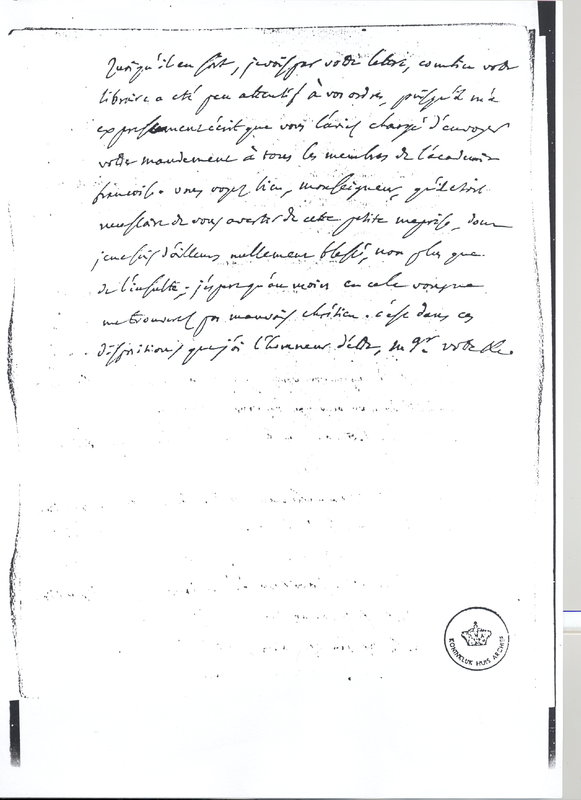 Quoiqu'il en soit, je vois par votre lettre, combien votre
libraire a été peu attentif à vos ordres, puisqu'il m'a
expressement écrit que vous l'aviés chargé d'envoyer
votre mandement à tous les membres de l'academie
françoise. vous voyez bien, monseigneur, qu'il etoit
necessaire de vous avertir de cette petite meprise, dont
je ne suis d'ailleurs nullement blessé, non plus que
de l'insulte; j'espere qu'au moins en cela vous ne
me trouverés pas mauvais chrétien. c'est dans ces
dispositions que j'ai l'honneur d'être, m gr votre &c.
KONINKLIJK HUIS ARCHIEF